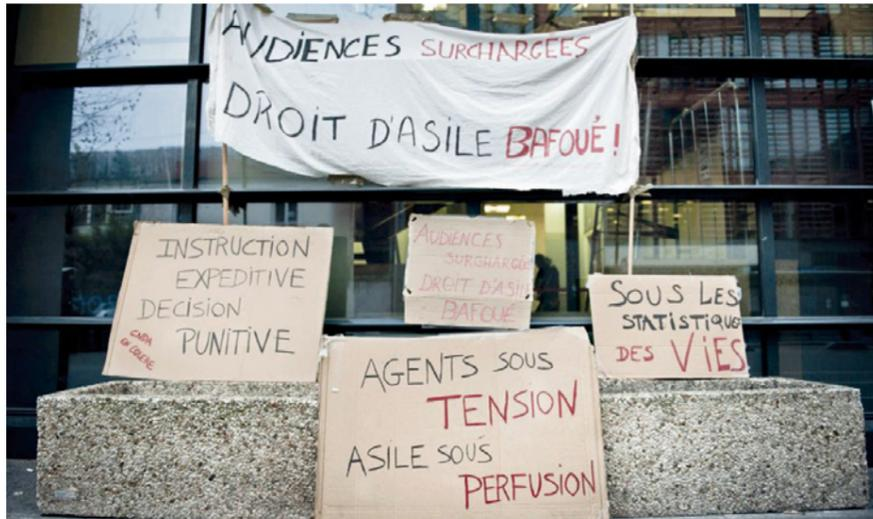 AUDIENCES SURCHARGÉES
DROIT D'ASILE BAFOUÉ !
INSTRUCTION
EXPEDITIVE
DECISION
PUNITIVE
CNDA
EN COLERE
AUDIENCES
SURCHARGÉE
DROIT D'ASIL
BAFOUÉ
SOUS LES
STATISTIQUE
DES VIES
AGENTS SOUS
TENSION
ASILE SOUS
PERFUSION